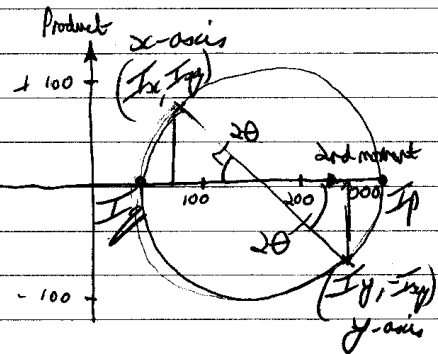 Product
x-axis
+ 100
(Ix, Ixy)
2θ
2nd moment
100
200
Ip
2θ
- 100
(Iy, -Ixy)
y-axis